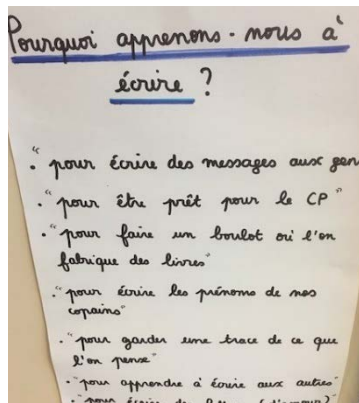 Pourquoi apprenons-nous à
écrire ?
. "pour écrire des messages aux gen
. "pour être prêt pour le CP"
. "pour faire un boulot où l'on
fabrique des livres"
. "pour écrire les prénoms de nos
copains"
. "pour garder une trace de ce que
l'on pense"
. "pour apprendre à écrire aux autres"
. "pour écrire